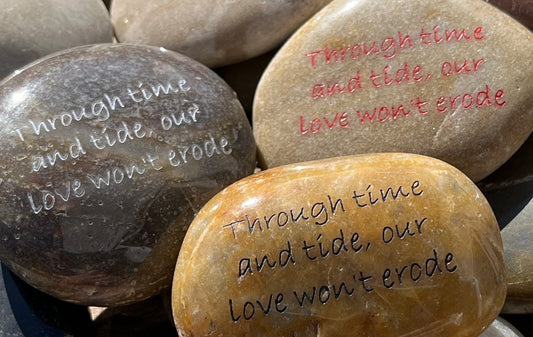 Through time
and tide, our
love won't erode
Through time
and tide, our
love won't erode
Through time
and tide, our
love won't erode